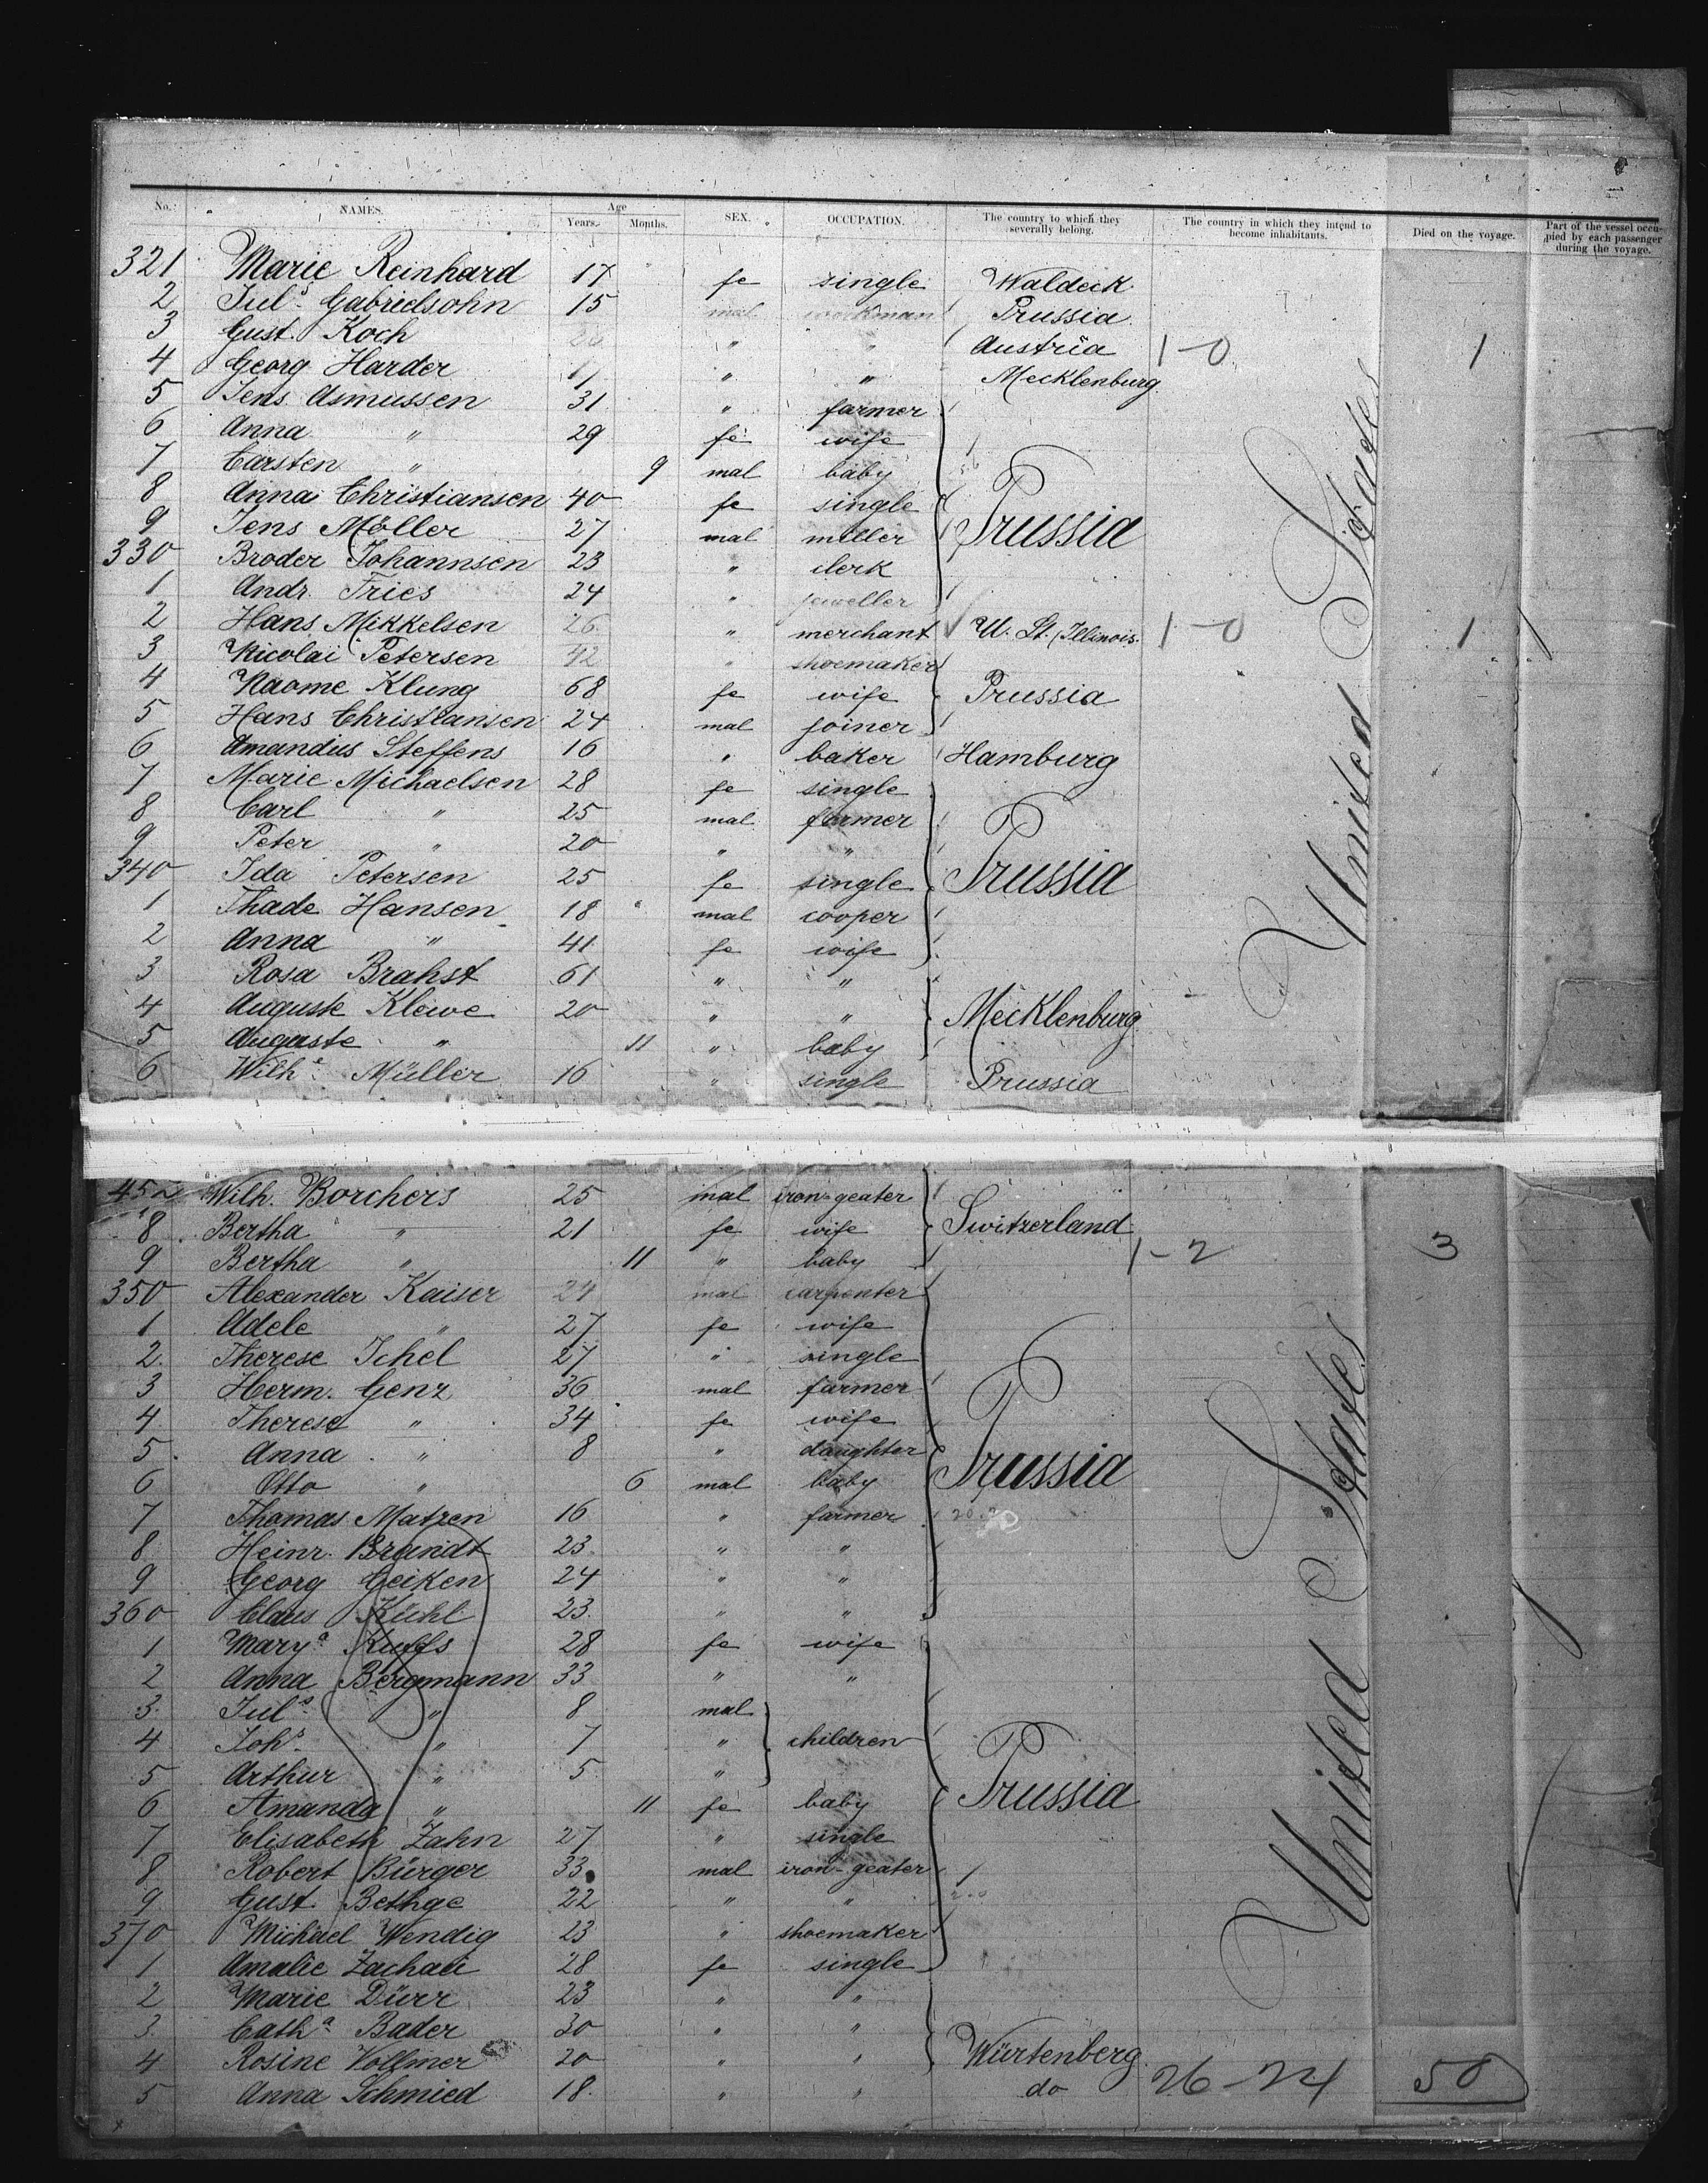 No. NAMES. Age Years. Months. SEX. OCCUPATION. The country to which they severally belong. The country in which they intend to become inhabitants. Died on the voyage. Part of the vessel occupied by each passenger during the voyage.
321 Marie Reinhard 17 fe single Waldeck
2 Juls Gabrielsohn 15 mal workman Prussia
3 Gust. Koch " " Austria 1-0 1
4 Georg Harder " " Mecklenburg
5 Jens Asmussen 31 " farmer
6 Anna " 29 fe wife
7 Carsten " 9 mal baby
8 Anna Christiansen 40 fe single Prussia
9 Jens Möller 27 mal miller
330 Broder Johannsen 23 " clerk
1 Andr. Fries 24 " jeweller
2 Hans Mikkelsen 26 " merchant U. St. Illinois. 1-0 1
3 Nicolai Petersen 42 " shoemaker
4 Naome Klung 68 fe wife Prussia
5 Hans Christiansen 24 mal joiner
6 Amandus Steffens 16 " baker Hamburg
7 Marie Michaelsen 28 fe single
8 Carl " 25 mal farmer
9 Peter " 20 " "
340 Ida Petersen 25 fe single Prussia
1 Thade Hansen 18 mal cooper
2 Anna " 41 fe wife
3 Rosa Brahst 61 " "
4 Auguste Klewe 20 " " Mecklenburg
5 Auguste " 11 " baby
6 Wilhe Müller 16 " single Prussia
United States
Wilh. Borchers 25 mal iron-geater
8 Bertha " 21 fe wife Switzerland
9 Bertha " 11 " baby 1-2 3
350 Alexander Kaiser 24 mal carpenter
1 Adele " 27 fe wife
2. Therese Ichel 27 " single
3 Herm. Genz 36 mal farmer
4 Therese " 34 fe wife
5 Anna " 8 " daughter
6 Otto " 6 mal baby Prussia
7 Thomas Matzen 16 " farmer
8 Heinr. Brandt 23 " "
9 Georg Geiken 24 " "
360 Claus Kühl 23 " "
1 Marya 28 fe wife
2 Anna Bergmann 33 " "
3. Juls " 8 mal
4 Johs " 7 " children
5 Arthur " 5 "
6 Amanda " 11 fe baby Prussia
7 Elisabeth Zahn 27 " single
8 Robert Bürger 33 mal iron-geater
9 Gust. Bethge 22 " "
370 Michael Wendig 23 " shoemaker
1 Amalie Zachau 28 fe single
2 Marie Dürr 23 " "
3. Catha Bader 30 " "
4 Rosine Vollmer 20 " " Würtenberg
5 Anna Schmied 18 " " do 26-24 50
United States